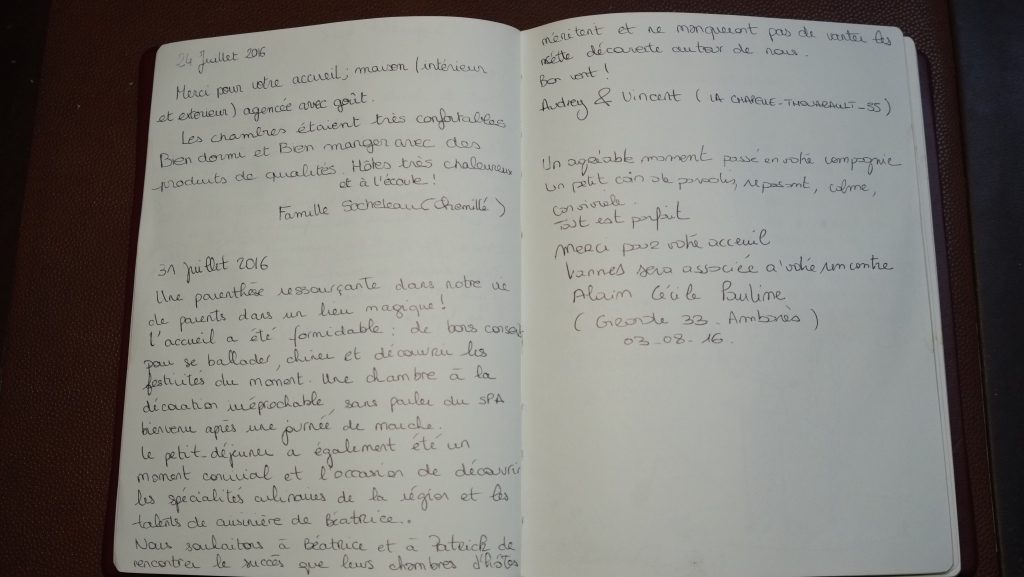 24 Juillet 2016
Merci pour votre accueil; maison (intérieur
et extérieur) agencée avec goût.
Les chambres étaient très confortables
Bien dormi et Bien manger avec des
produits de qualités. Hôtes très chaleureux
et à l'écoute !
Famille Socheleau (Chemillé)
31 Juillet 2016
Une parenthèse ressourçante dans notre vie
de parents dans un lieu magique !
L'accueil a été formidable : de bons conseils
pour se ballader, chiner et découvrir les
festivités du moment. Une chambre à la
décoration irréprochable, sans parler du SPA
bienvenu après une journée de marche.
Le petit-déjeuner a également été un
moment convivial et l'occasion de découvrir
les spécialités culinaires de la région et les
talents de cuisinière de Béatrice..
Nous souhaitons à Béatrice et à Patrick de
rencontrer le succès que leurs chambres d'hôtes
méritent et ne manqueront pas de vanter
cette découverte autour de nous.
Bon vent !
Audrey & Vincent (LA CHAPELLE-THOUARAULT-35)
Un agréable moment passé en votre compagnie
un petit coin de paradis, reposant, calme,
conviviale.
Tout est parfait
Merci pour votre acceuil
Vannes sera associée a votre rencontre
Alain Cécile Pauline
(Gironde 33 - Ambarès)
03-08-16.